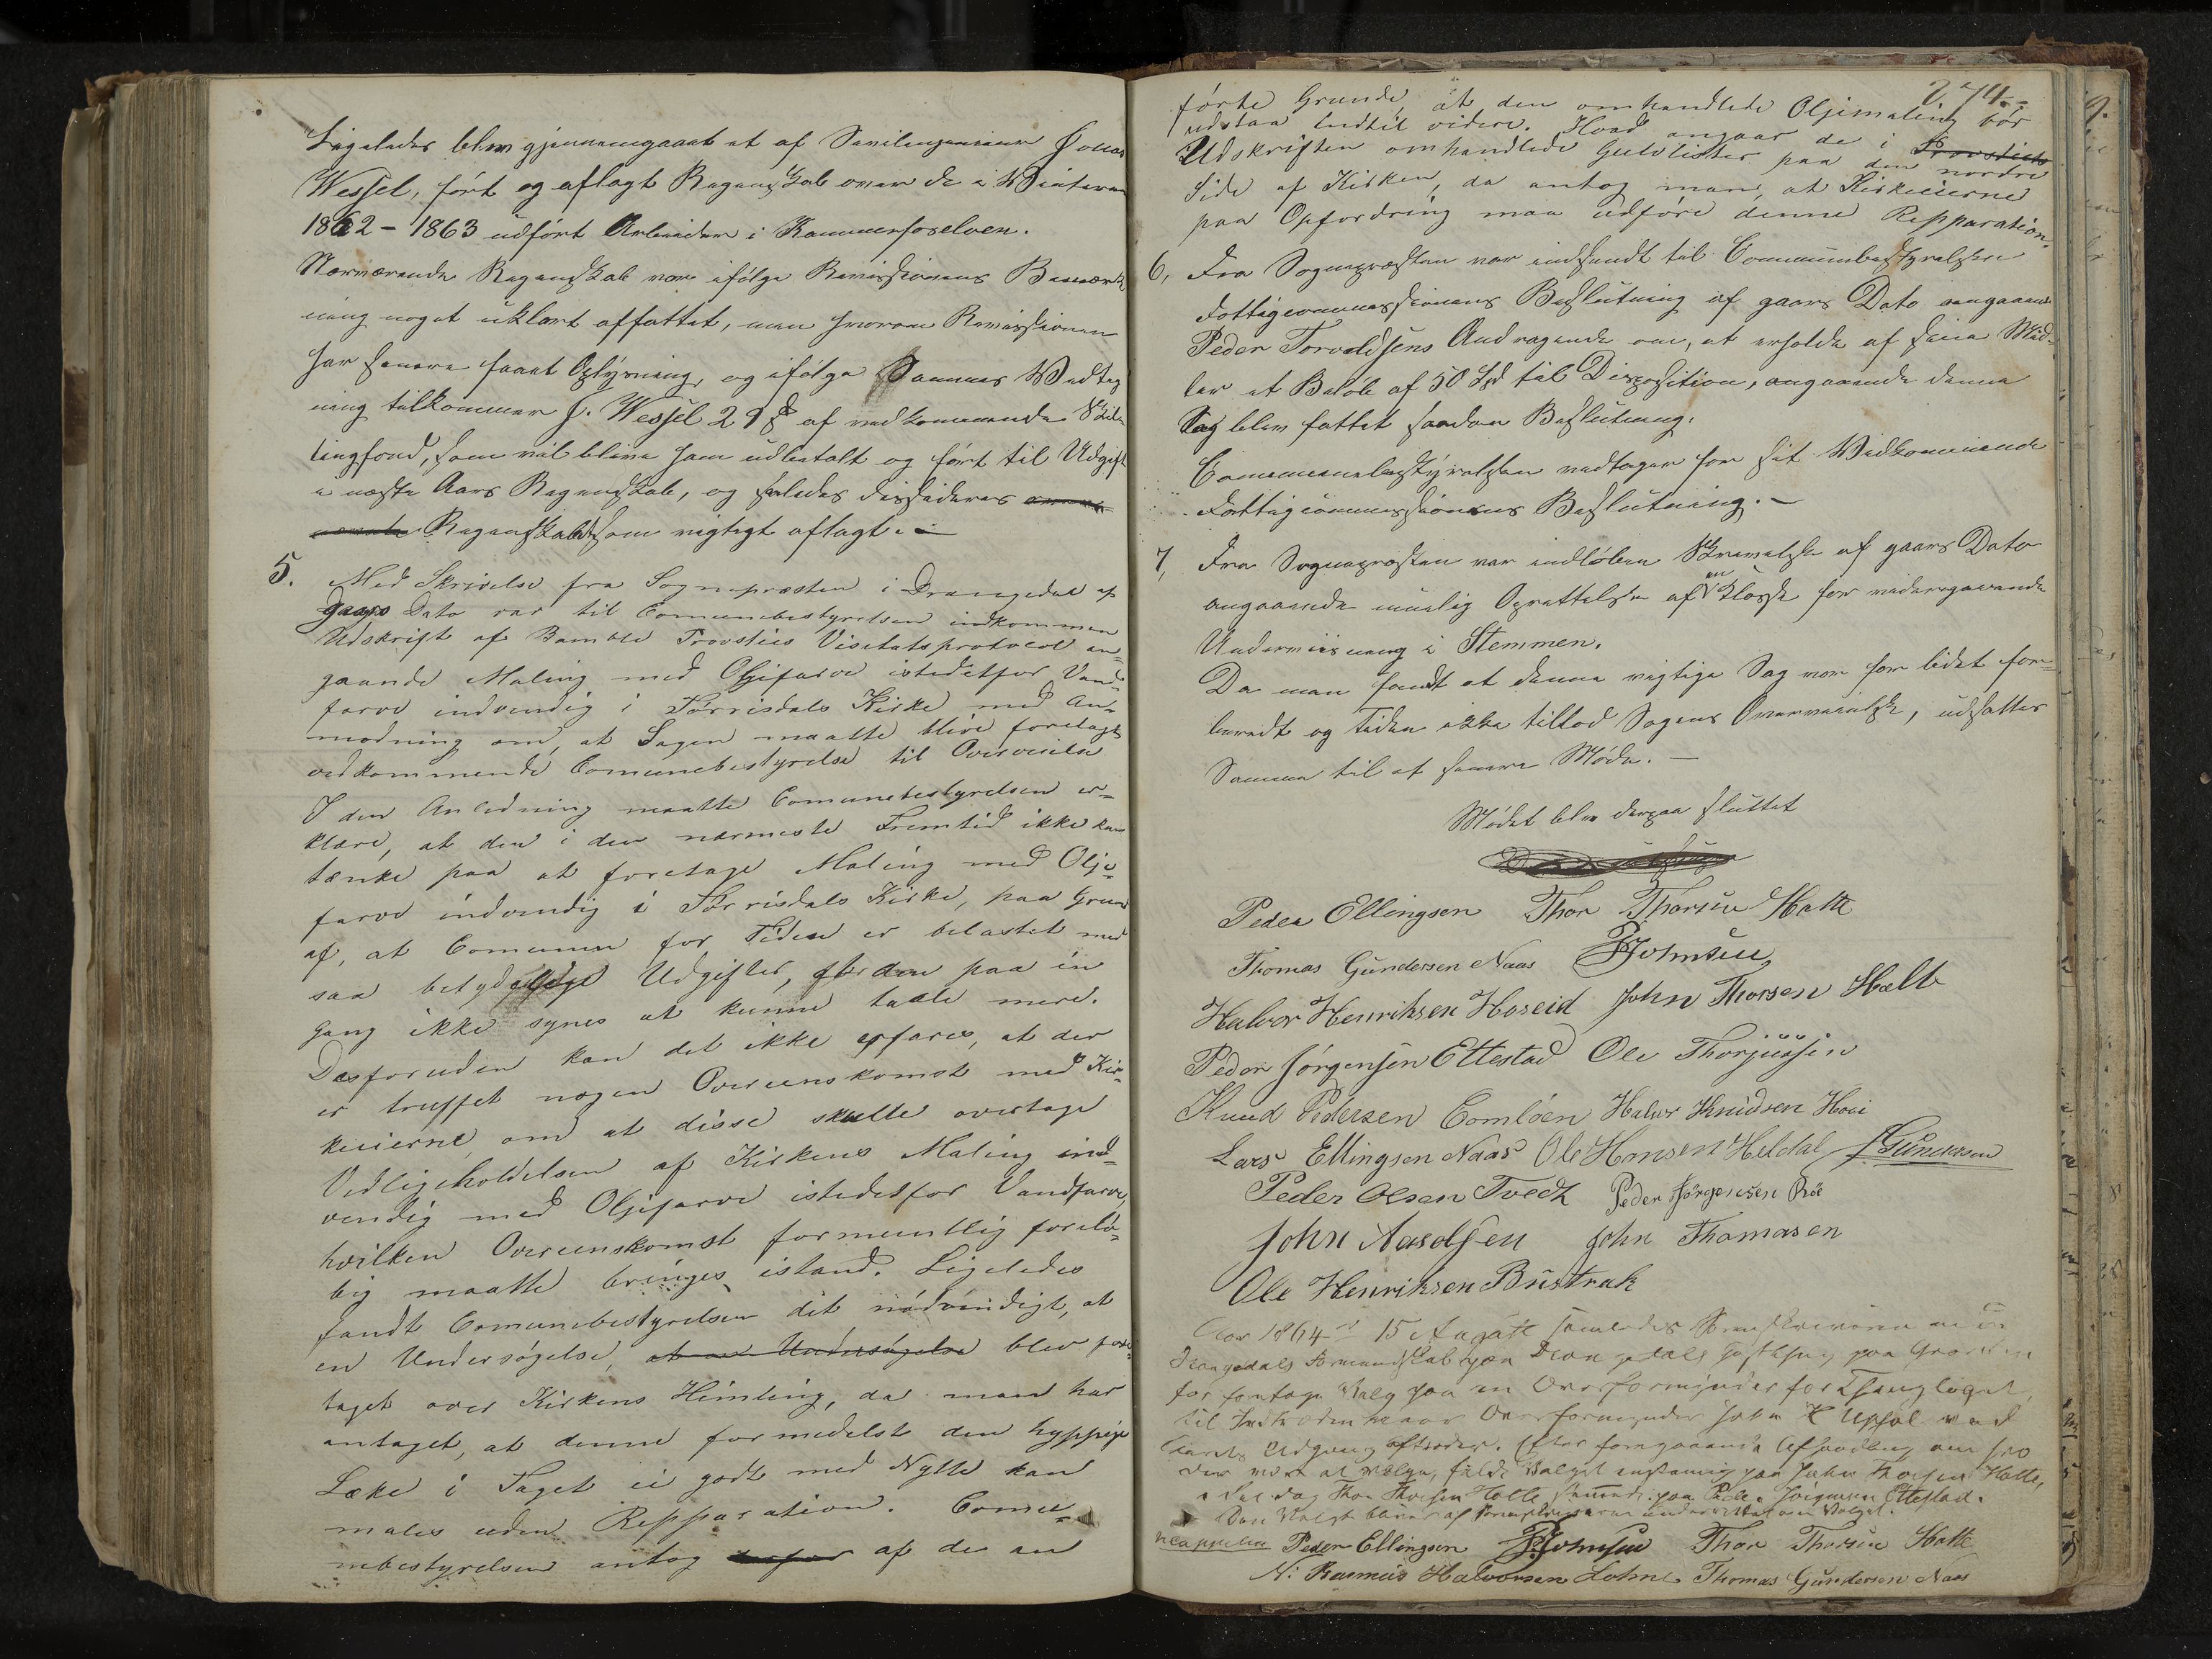 Ligeledes blev gjennemgaaet et af Jonas
Wessel, ført og aflagt Regnskab over de i Vinteren
1862 - 1863 udført Arbeider i Kammerfoselven.
Nærværende Regnskab var ifølge Revisionens Bemærk
ning noget uklart affattet, men hvorom Revisionen
har senere faaet Oplysning, og ifølge Sammes Vedteg
ning tilkommer J. Wessel 29 ß af vedkommende Skil
lingfond, som vil blive ham udbetalt og ført til Udgift
i næste Aars Regnskab, og saaledes desideres
Regnskabet som rigtigt aflagt. —
5. Med Skrivelse fra Sognepræsten i Drangedal af
gaars Dato var til Comunebestyrelsen indkommen
Udskrift af Bamble Provsties Visitatsprotocol an-
gaaende Maling med Oljefarve istedetfor Vand-
farve indvendig i Tørrisdals Kirke med An-
modning om, at Sagen maatte blive foretaget
vedkommende Comunebestyrelse til Overveielse
I den Anledning maatte Comunebestyrelsen er-
klære, at den i den nærmeste Fremtid ikke kan
tænke paa at foretage Maling med Olje-
farve indvendig i Tørrisdals Kirke, paa Grund
af, at Comunen for Tiden er belastet med
saa betydelige Udgifter, der den paa en
Gang ikke synes at kunne taale mere.
Desforuden kan det ikke erfares, at der
er truffet nogen Overeenskomst med Kir-
keeierne, om at disse skulle overtage
Vedligeholdelsen af Kirkens Maling ind-
vendig med Oljefarve istedetfor Vandfarve,
hvilken Overeenskomst formentlig forelø-
big maatte bringes istand. Ligeledes
fandt Comunebestyrelsen det nødvendigt, at
en Undersøgelse, at en Undersøgelse blev fore-
taget over Kirkens Himling, da man har
antaget, at denne formedelst den hyppige
Læke i Taget ei godt med Nytte kan
males uden Repparation. Comu-
nebestyrelsen antog af de an
274.
førte Grunde, at den omhandlede Oljemaling bør
udstaa indtil videre. Hvad angaar de i Provsties
Udskriften omhandlede Gulvlister paa den nordre
Side af Kirken, da antog man, at Kirkeeierne
paa Opfordring maa udføre denne Repparation.
6, Fra Sognepræsten var indsendt til Communebestyrelsen
Fattigcommissionens Beslutning af gaars Dato angaaende
Peder Torvaldsens Andragende om, at erholde af sine Mid-
ler et Beløb af 50 Spd til Disposition, angaaende denne
Sag blev fattet saadan Beslutning:
Communebestyrelsen vedtager for sit Vedkommende
Fattigcommissionens Beslutning. —
7, Fra Sognepræsten var indløben Skrivelse af gaars Dato
angaaende muelig Oprettelse af en Klasse for videregaaende
Underviisning i Stemmen.
Da man fandt at denne vigtige Sag var for lidet for-
beredt og Tiden ikke tillod Sagens Overveielse, udsattes
Samme til et senere Møde. —
Mødet blev derpaa sluttet
Peder Ellingsen Thor Thorsen Holte
Thomas Gundersen Naas PJohnsen
Halvor Henriksen Hoseid John Thorsen Holte
Peder Jørgensen Ettestad Ole Thorjussen
Knud Pedersen Tomløen Halvor Knudsen Hoei
Lars Ellingsen Naas Ole Hansen Heldal Gundersen
Peder Olsen Tvedt Peder Jørgensen Røe
John Aasolfsen John Thomasen
Ole Henriksen Bustrak
Aar 1864 d 15 August samledes
Drangedals Formandskab paa Drangedals Thingstue paa Grosven
for foretage Valg paa en Overformynder for Thinglaget
til Indtræden naar Overformynder John K Upsal ved
Aarets Udgang aftræder. Efter foregaaende Afhandling om hvo
der var at vælge, faldt Valget enstemmig paa John Thorsen Holte,
Thor Thorsen Holte stemte paa Peder Jørgensen Ettestad.
Peder Ellingsen PJohnsen Thor Thorsen Holte
N: Rasmus Halvorsen Lohne Thomas Gundersen Naas